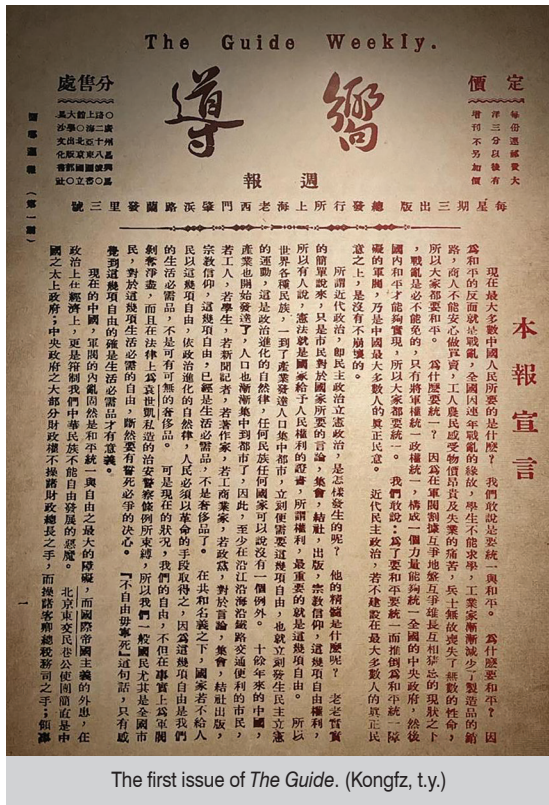 The Guide Weekly.
定價
每份連郵費大
洋三分以後有
增刊不另加價
嚮導
週報
分售處
○廣州昌興馬
路二十八號○
上海亞東圖書
館○北京國立
大學出版部○
長沙文化書社
嚮導週報（第一期）
每星期三出版 總發行所上海老西門肇浜路蘭發里三號
本報宣言
現在最大多數中國人民所要的是什麼？ 我們敢說是要統一與和平。 為什麼要和平？ 因
為和平的反面就是戰亂，全國因連年戰亂的緣故，學生不能求學，工業家漸漸減少了製造品的銷
路，商人不能安心做買賣，工人農民感受物價昂貴及失業的痛苦，兵士無故喪失了無數的性命，
所以大家都要和平。 為什麼要統一？ 因為在軍閥割據互爭地盤互爭雄長互相猜忌的現狀之下
，戰亂是必不能免的，只有將軍權統一政權統一，構成一個力量能夠統一全國的中央政府，然後
國內和平才能夠實現，所以大家都要統一。 我們敢說：為了要和平要統一而推倒為和平統一障
礙的軍閥，乃是中國最大多數人的真正民意。 近代民主政治，若不建設在最大多數人的真正民
意之上，是沒有不崩壞的。
所謂近代政治，即民主政治立憲政治，是怎樣發生的呢？ 他的精髓是什麼呢？ 老老實實
的簡單說來，只是市民對於國家所要的言論，集會，結社，出版，宗教信仰，這幾項自由權利，
所以有人說，憲法就是國家給予人民權利的證書，所謂權利，最重要的就是這幾項自由。 所以
世界各種民族，一到了產業發達人口集中都市，立刻便需要這幾項自由，也就立刻發生民主立憲
的運動，這是政治進化的自然律，任何民族任何國家可以說沒有一個例外。 十餘年來的中國，
產業也開始發達了，人口也漸漸集中到都市了，因此，至少在沿江沿海沿鐵路交通便利的市民，
若工人，若學生，若新聞記者，若著作家，若工商業家，若政黨，對於言論，集會，結社，出版，
宗教信仰，這幾項自由，已經是生活必需品，不是奢侈品了。 在共和名義之下，國家若不給人
民以這幾項自由，依政治進化的自然律，人民必須以革命的手段取得之，因為這幾項自由是我們
的生活必需品，不是可有可無的奢侈品。 可是現在的狀況，我們的自由，不但在事實上為軍閥
剝奪淨盡，而且在法律上為袁世凱私造的治安警察條例所束縛，所以我們一般國民尤其是全國市
民，對於這幾項生活必需的自由，斷然要有誓死必爭的決心。 『不自由毋寧死』這句話，只有感
覺到這幾項自由的確是生活必需品才有意義。
現在的中國，軍閥的內亂固然是和平統一與自由之最大的障礙，而國際帝國主義的外患，在
政治上在經濟上，更是箝制我們中華民族不能自由發展的惡魔。 北京東交民巷公使團簡直是中
國之太上政府；中央政府之大部分財政權不操諸財政總長之手，而操諸客卿總稅務司之手；領事
一
The first issue of The Guide. (Kongfz, t.y.)